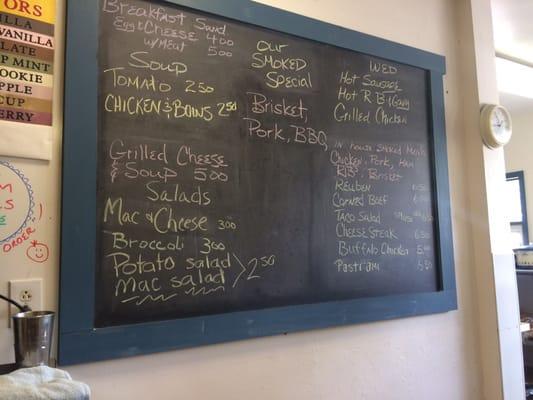 TORS
ILLA
VANILLA
LATE
P MINT
OOKIE
PPLE
CUP
ERRY
Breakfast Sand
Egg & Cheese 400
w/Meat 500
Soup
Tomato 250
CHICKEN & BOWS 250
Grilled Cheese
& Soup 500
Salads
Mac & Cheese 300
Broccoli 300
Potato salad
Mac salad > 250
Our
SMOKED
Special
Brisket,
Pork, BBQ,
WED
Hot Sausage
Hot R B/Gravy
Grilled Chicken
IN house Smoked Meats
Chicken, Pork, Ham
RIBS, Brisket
Reuben
Corned Beef
Taco Salad
Cheese Steak
Buffalo Chicken
Pastrami